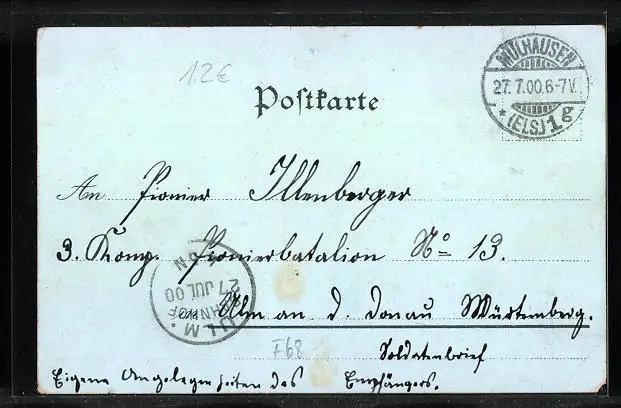 12€
Postkarte
MÜLHAUSEN
27.7.00.6-7V.
* (ELS.) 1 g
An Pionier Illenberger
3. Komp. Pionierbatalion No 13.
Ulm an d. Donau Würtemberg.
ULM.
BAHNHOF
27 JUL 00
F68
Soldatenbrief
Eigene Angelegenheiten des Empfängers.